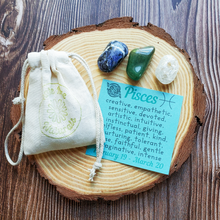 Pisces ♓
creative, empathetic,
sensitive, devoted,
artistic, intuitive,
instinctual, giving,
selfless, patient, kind
nurturing, tolerant,
faithful, gentle
imaginative, intense
February 19 - March 20